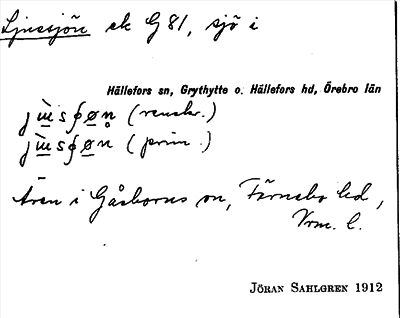 Ljussjön ek G 81, sjö i
Hällefors sn, Grythytte o. Hällefors hd, Örebro län
(renskr.)
(prim.)
Även i Gåsborns sn, Färnebo hd,
Vrm. l.
JÖRAN SAHLGREN 1912